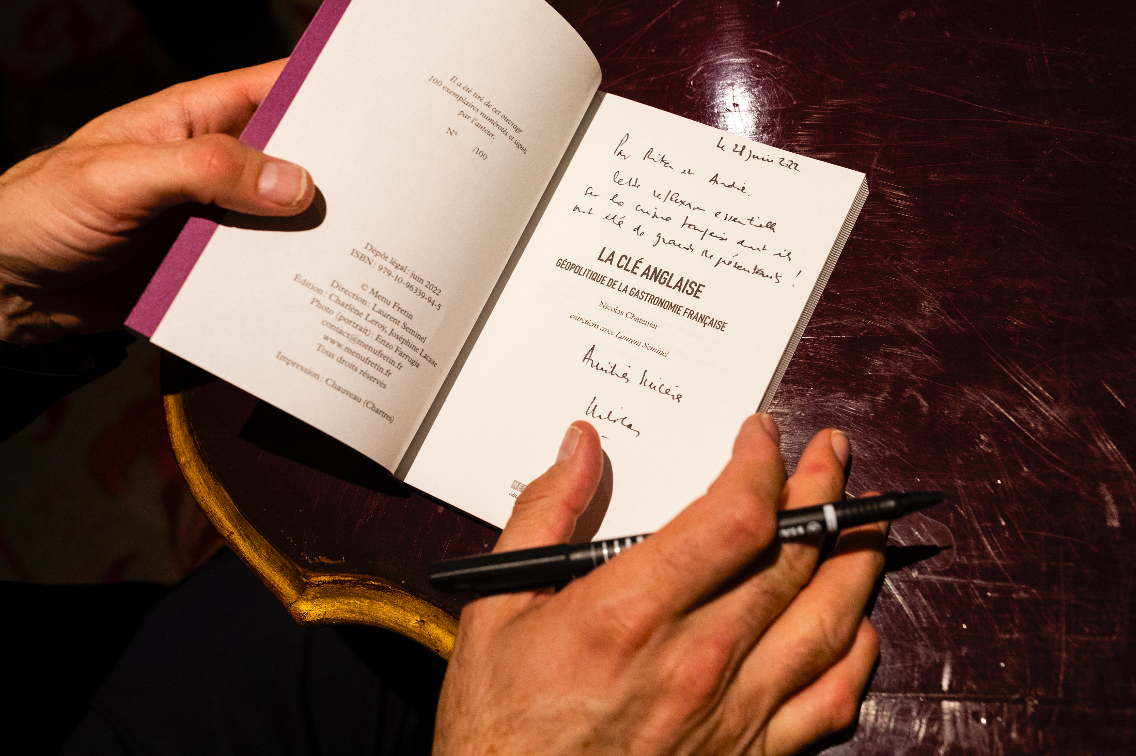 Il a été tiré de cet ouvrage
100 exemplaires numérotés et signés
par l'auteur.
N°
/100
Dépôt légal : juin 2022
ISBN : 979-10-96339-94-5
© Menu Fretin
Direction : Laurent Seminel
Édition : Charlène Leroy, Joséphine Lacasse
Photo (portrait) : Enzo Farrugia
contact@menufretin.fr
www.menufretin.fr
Tous droits réservés
Impression : Chauveau (Chartres)
le 28 juin 2022
Pour et André.
Cette réflexion essentielle
sur la cuisine française dont ils
ont été de grands Représentants !
LA CLÉ ANGLAISE
GÉOPOLITIQUE DE LA GASTRONOMIE FRANÇAISE
Nicolas Chatenier
entretiens avec Laurent Seminel
Amitiés Sincères
Nicolas